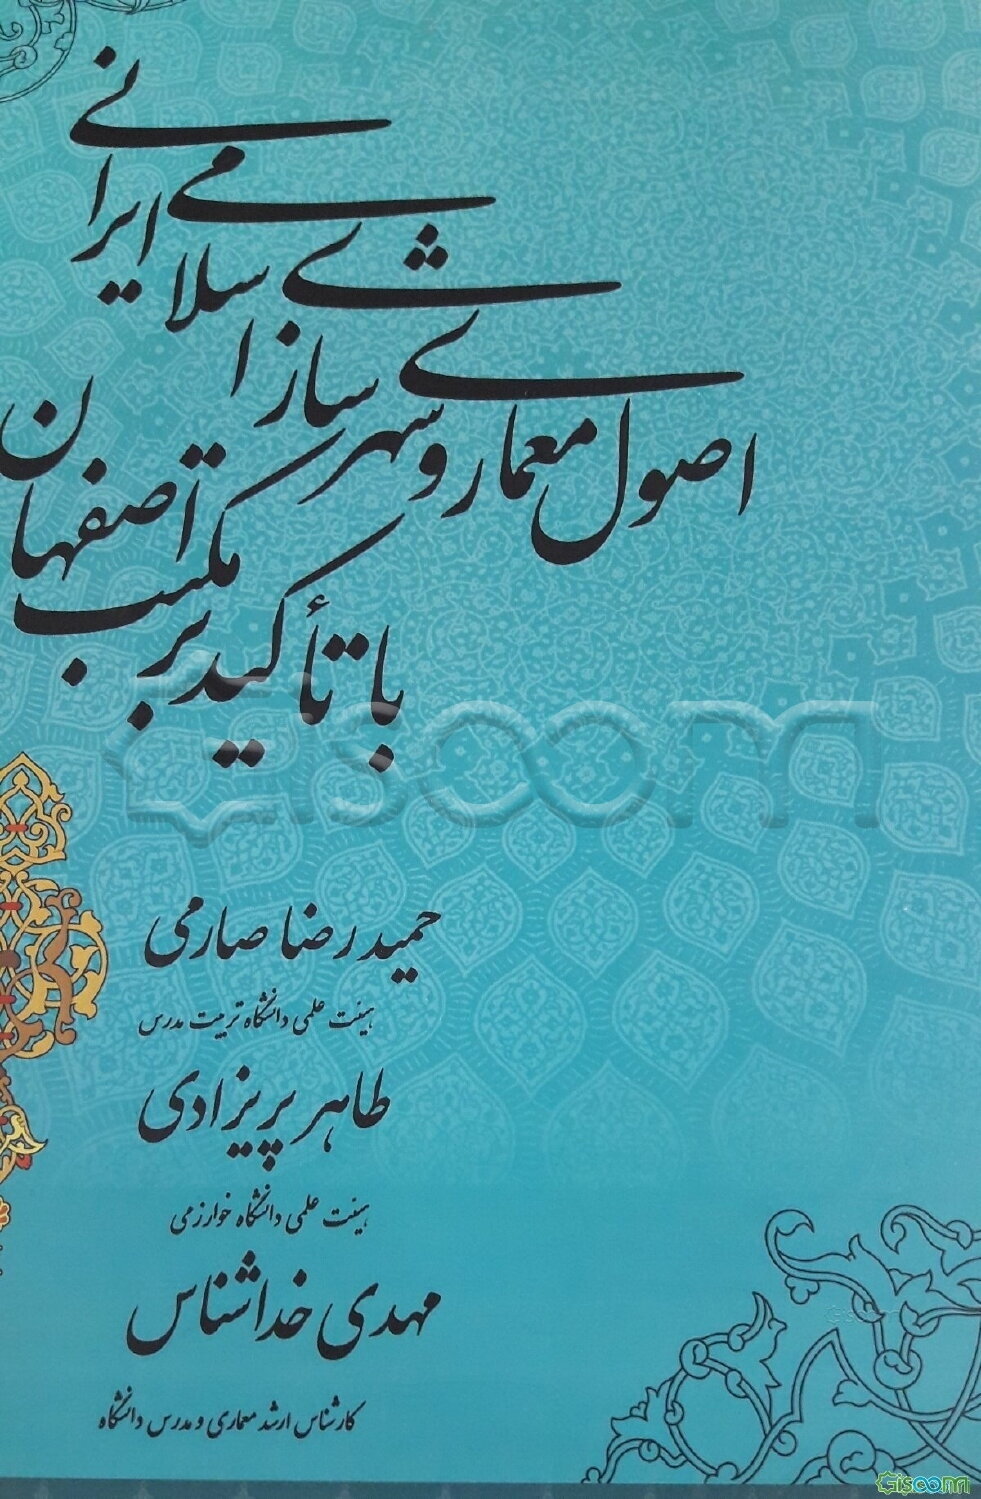 اصول معماری و شهرسازی اسلامی ایرانی
با تأکید بر مکتب اصفهان
Gisoom
حمیدرضا صارمی
هیئت علمی دانشگاه تربیت مدرس
طاهر پریزادی
هیئت علمی دانشگاه خوارزمی
مهدی خداشناس
کارشناس ارشد معماری و مدرس دانشگاه
Gisoom